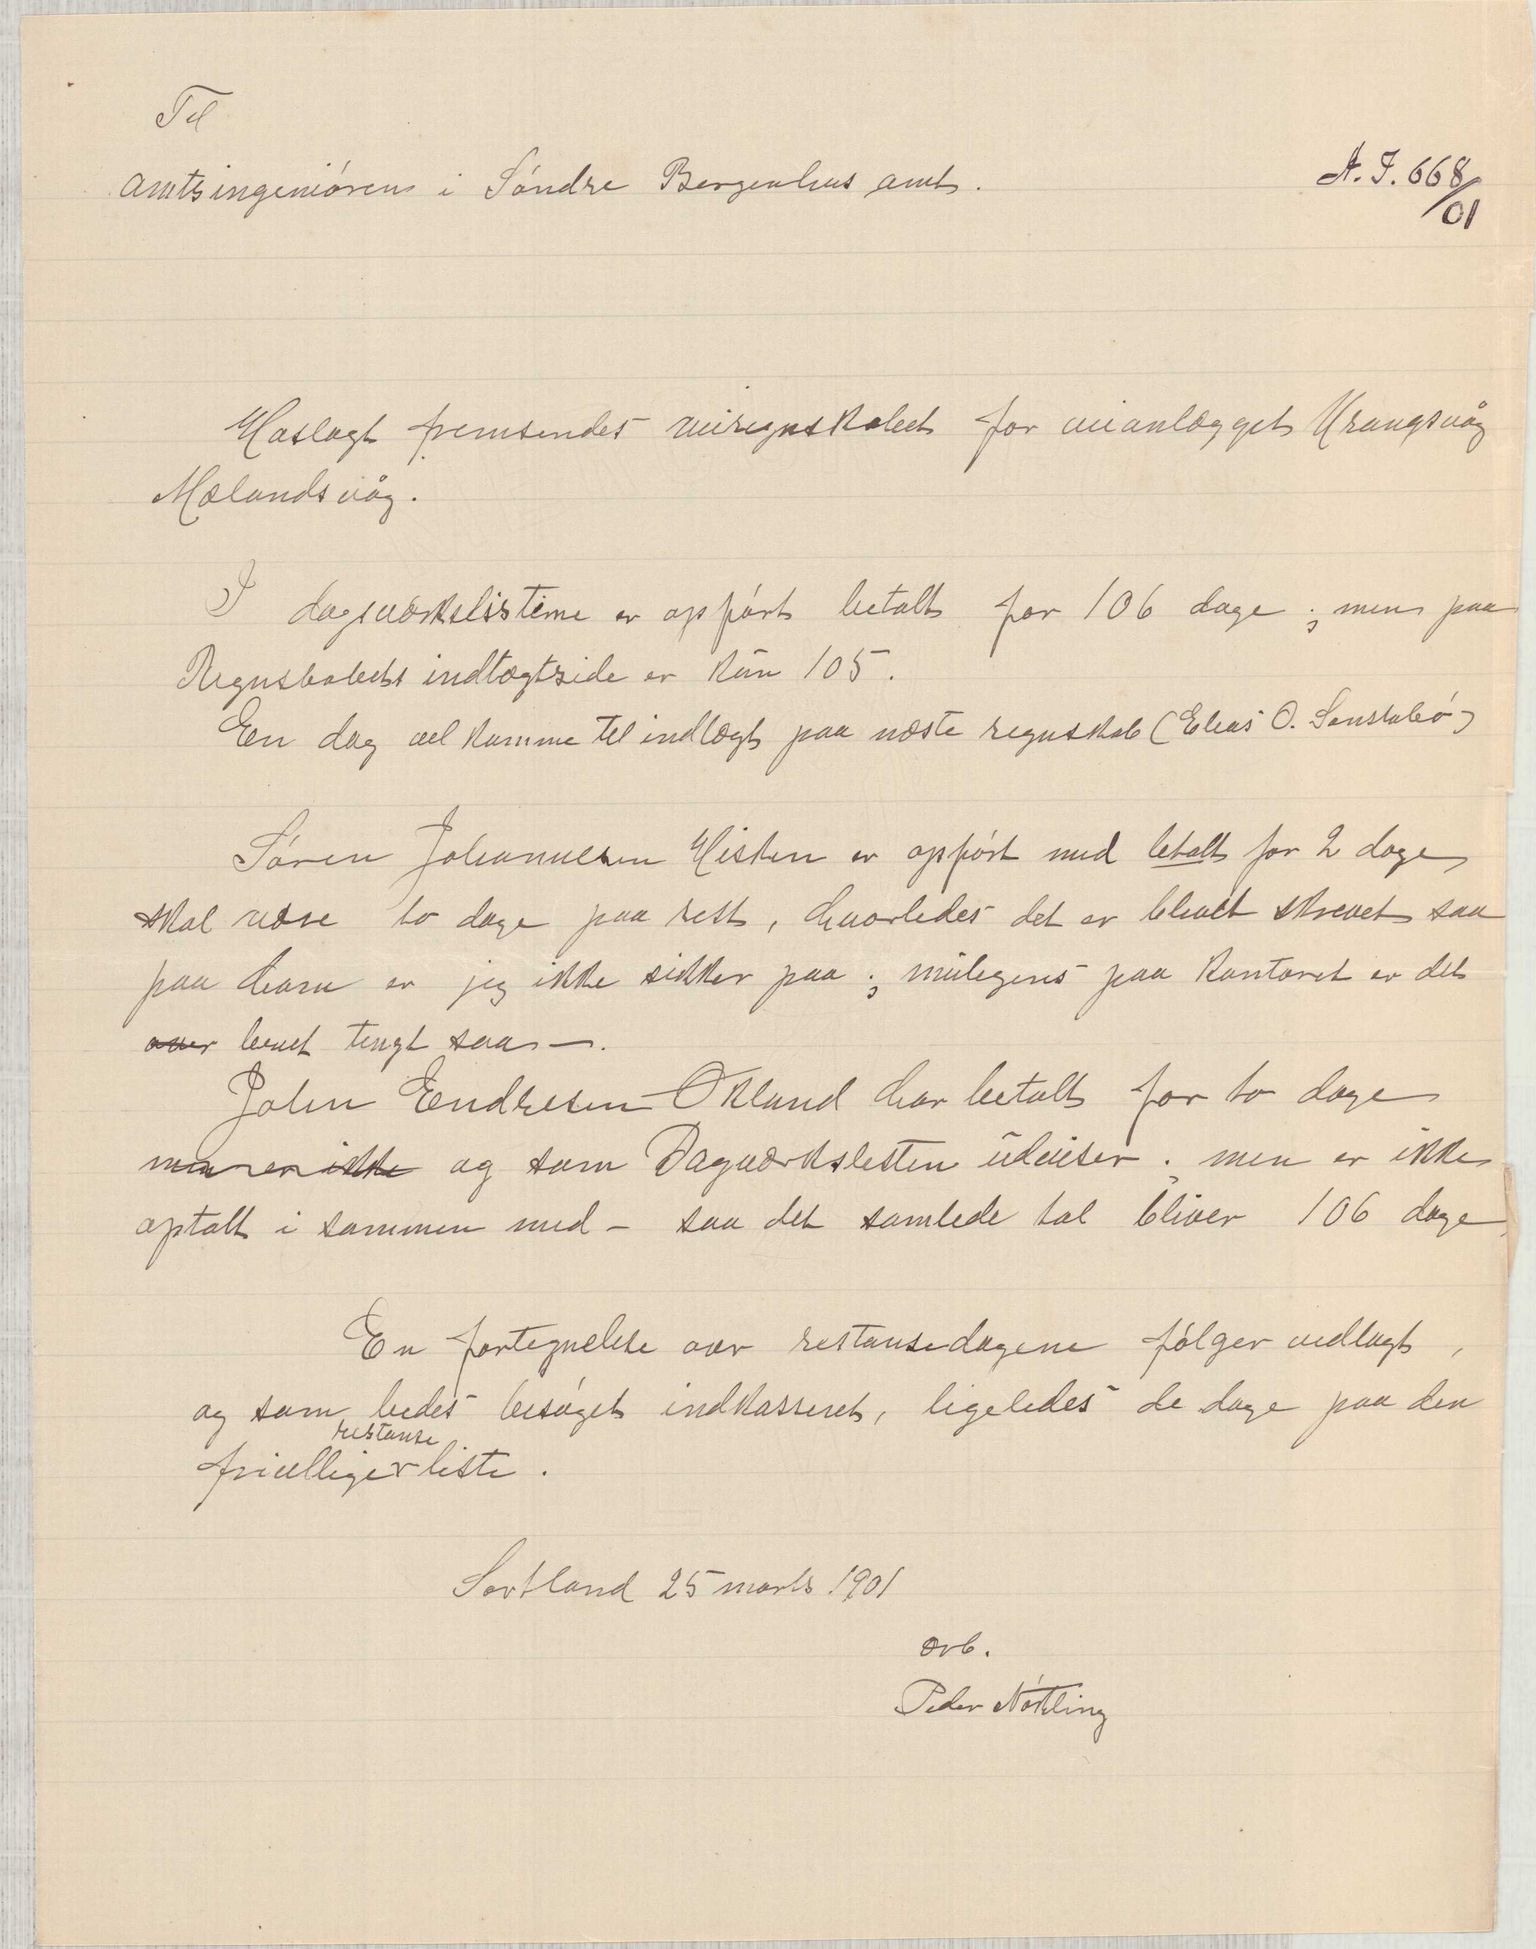 Til
Amtsingeniören i Söndre Bergenhus amt.
A. I. 668/01
Hoslagt fremsendes veiregnskabet for veianlægget Urangsvåg
Mælandsvåg.
I dagsværkslisterne er opført betalt for 106 dage ; men paa
Regnskabets indtægtside er kun 105.
En dag vil komme til indtægt paa næste regnskab (Elias O.
Søren Johannesen Hisken er opført med betalt for 2 dage,
skal være to dage paa rest, hvorledes det er blevet skrevet saa
paa ham er jeg ikke sikker paa ; muligens paa kontoret er det
bevet tengt saa —.
John Endresen Økland har betalt for to dage
men er ikke og som Dagværkslisten udviser ; men er ikke
optalt i sammen med – saa det samlede tal bliver 106 dage,
En fortegnelse over restansedagene følger vedlagt,
og som bedes besøget indkasseret, ligeledes de dage paa den
restanse
frivilliger liste.
Sortland 25 marts 1901
ærb.
Peder Nökling